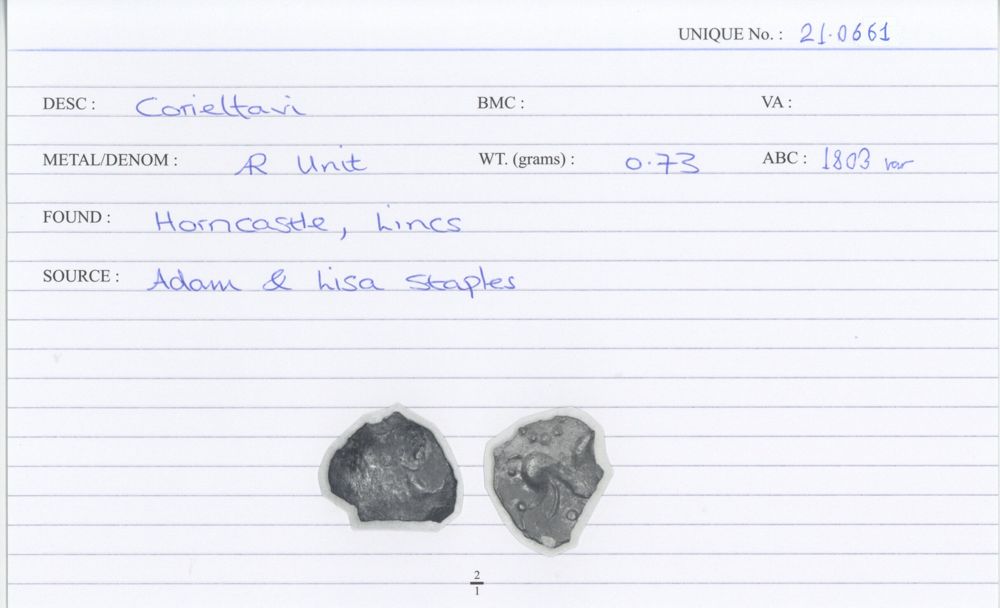 UNIQUE No. : 21.0661
DESC : Corieltavi BMC : VA :
METAL/DENOM : Æ Unit WT. (grams) : 0.73 ABC : 1803 var
FOUND : Horncastle, Lincs
SOURCE : Adam & Lisa Staples
2
1